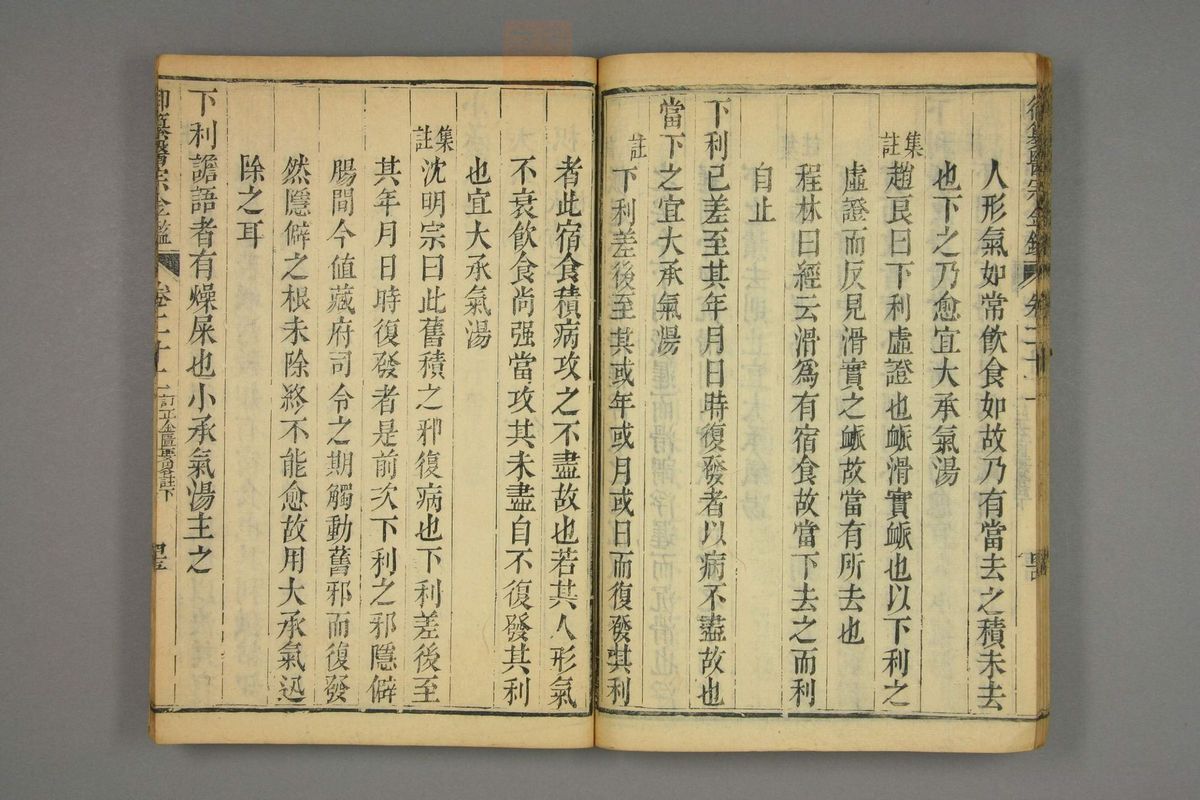 人形氣如常飲食如故乃有當去之積未去
也下之乃愈宜大承氣湯
集註
趙良曰下利虛證也脈滑實脈也以下利之
虛證而反見滑實之脈故當有所去也
程林曰經云滑爲有宿食故當下去之而利
自止
下利已差至其年月日時復發者以病不盡故也
當下之宜大承氣湯
註
下利差後至其或年或月或日而復發其利
者此宿食積病攻之不盡故也若其人形氣
不衰飲食尚强當攻其未盡自不復發其利
也宜大承氣湯
集註
沈明宗曰此舊積之邪復病也下利差後至
其年月日時復發者是前次下利之邪隱僻
腸間今値藏府司令之期觸動舊邪而復發
然隱僻之根未除終不能愈故用大承氣迅
除之耳
下利譫語者有燥屎也小承氣湯主之
御纂醫宗金鑑
卷二十
訂正金匱要畧註下